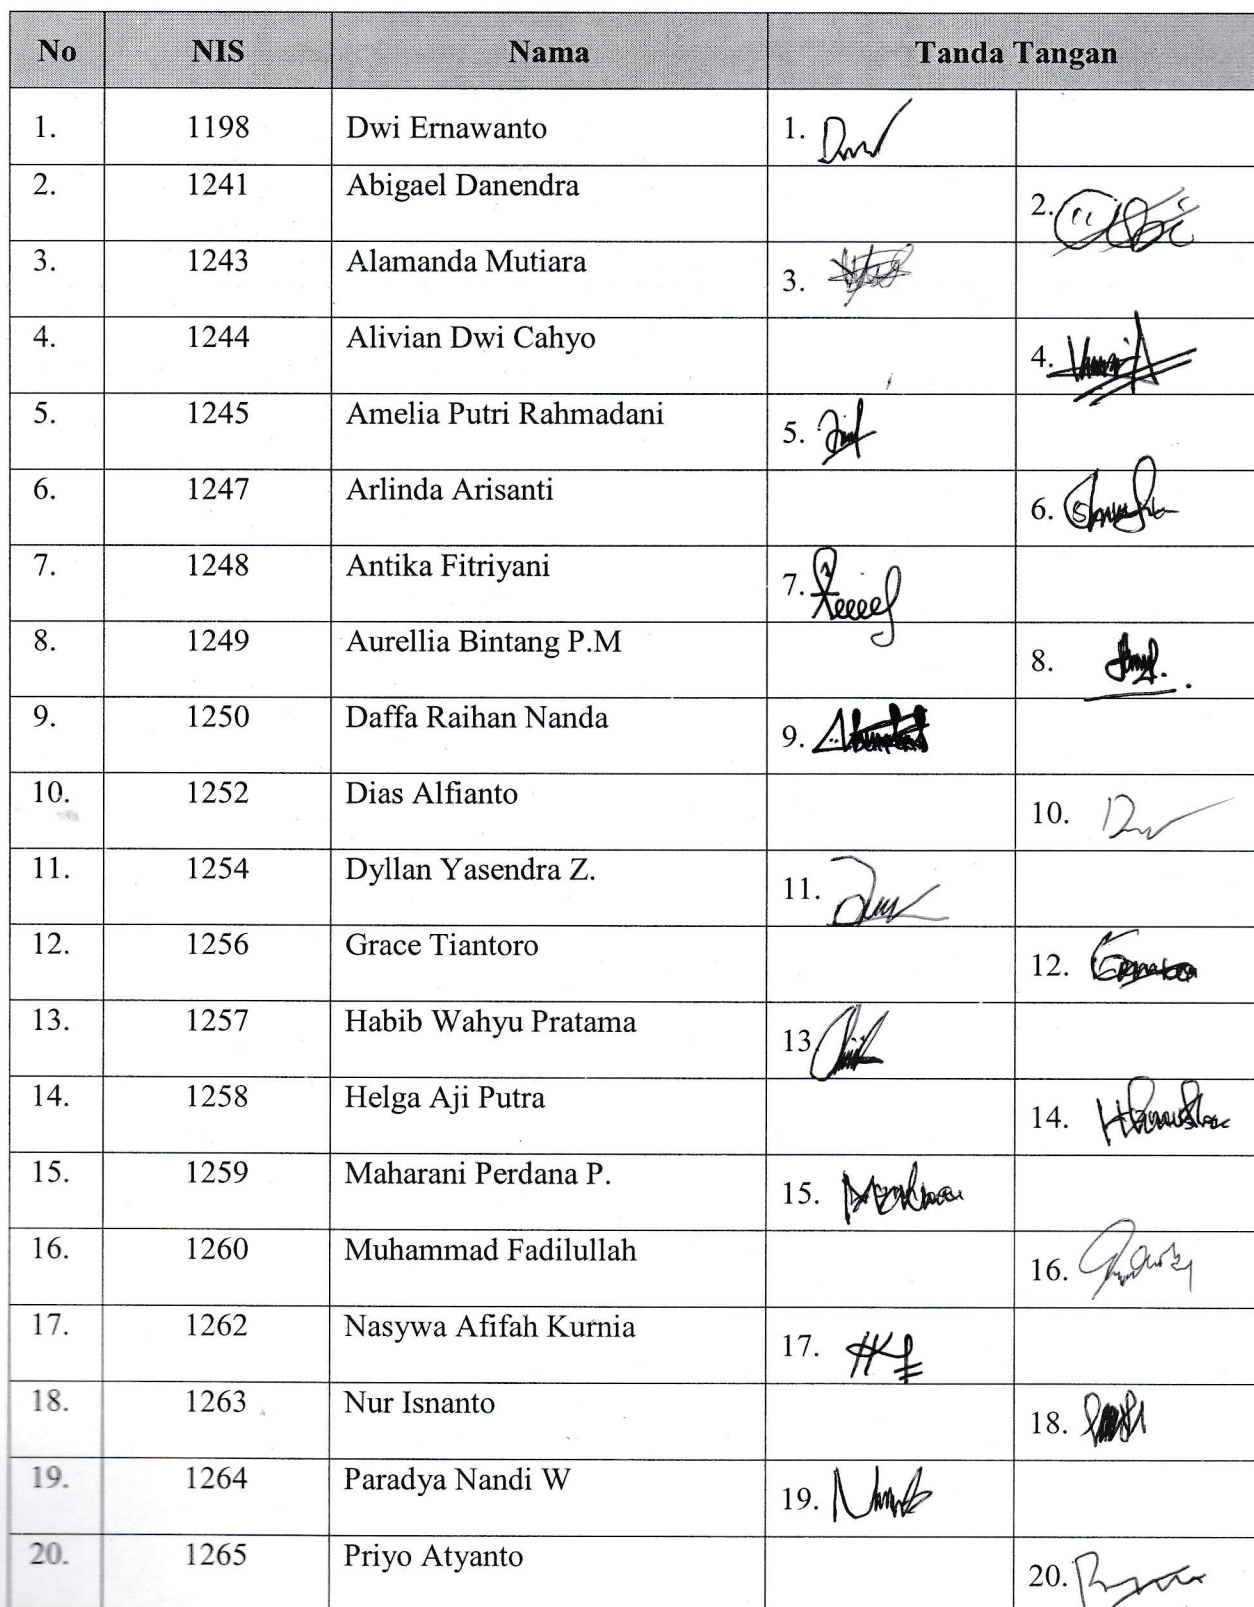 No NIS Nama Tanda Tangan
1. 1198 Dwi Ernawanto 1.
2. 1241 Abigael Danendra 2.
3. 1243 Alamanda Mutiara 3.
4. 1244 Alivian Dwi Cahyo 4.
5. 1245 Amelia Putri Rahmadani 5.
6. 1247 Arlinda Arisanti 6.
7. 1248 Antika Fitriyani 7.
8. 1249 Aurellia Bintang P.M 8.
9. 1250 Daffa Raihan Nanda 9.
10. 1252 Dias Alfianto 10.
11. 1254 Dyllan Yasendra Z. 11.
12. 1256 Grace Tiantoro 12.
13. 1257 Habib Wahyu Pratama 13
14. 1258 Helga Aji Putra 14.
15. 1259 Maharani Perdana P. 15.
16. 1260 Muhammad Fadilullah 16.
17. 1262 Nasywa Afifah Kurnia 17.
18. 1263 Nur Isnanto 18.
19. 1264 Paradya Nandi W 19.
20. 1265 Priyo Atyanto 20.